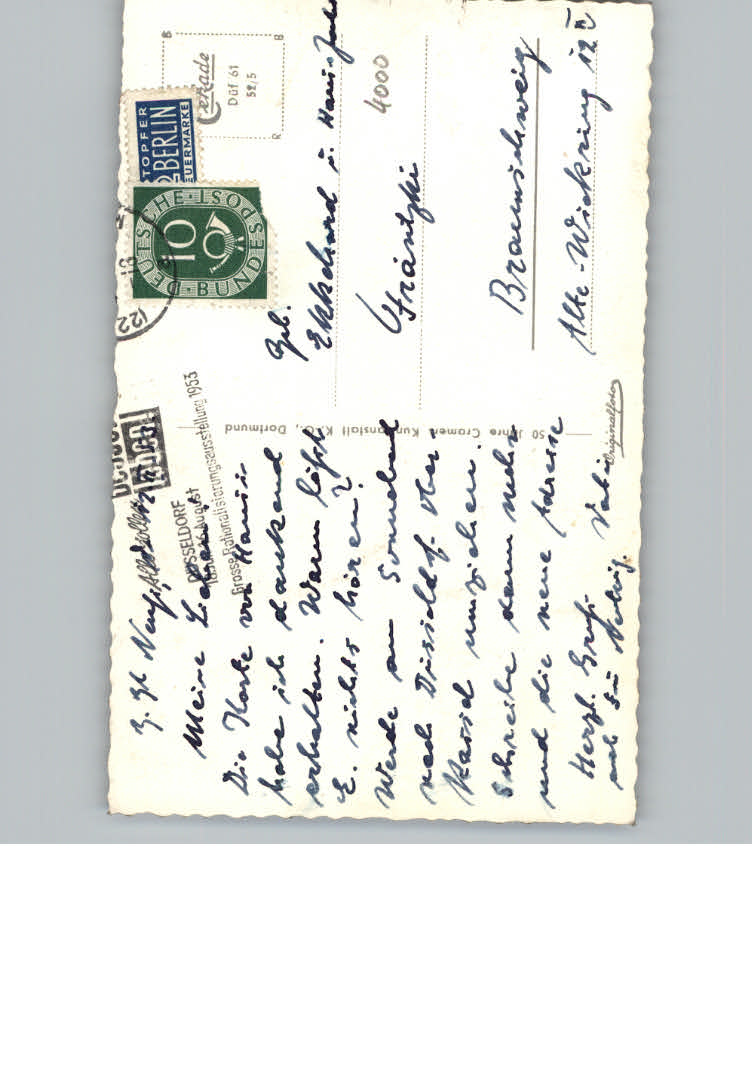 z. Zt. Neuß,
Meine Lieben!
Die Karte von Hansi
habe ich dankend
erhalten. Warum läßt
E. nichts hören?
Werde am Sonnabend
nach Düsseldf. Ober-
kassel umziehen.
Schreibe dann mehr
und die neue Adresse
Herzl. Gruß
auch für Hedwig. Vati
50 Jahre Cramers Kunstanstalt K.G., Dortmund
DÜSSELDORF
August
Grosse Rationalisierungsausstellung 1953
(22
NOTOPFER
2 BERLIN
STEUERMARKE
DEUTSCHE BUNDESPOST
10
Cekade
Düf 61
52/5
B
B
R
Geb.
Ekkehard u. Hans-
4000
Braunschweig
Alte-Wiekring 12 II
Originalfoto